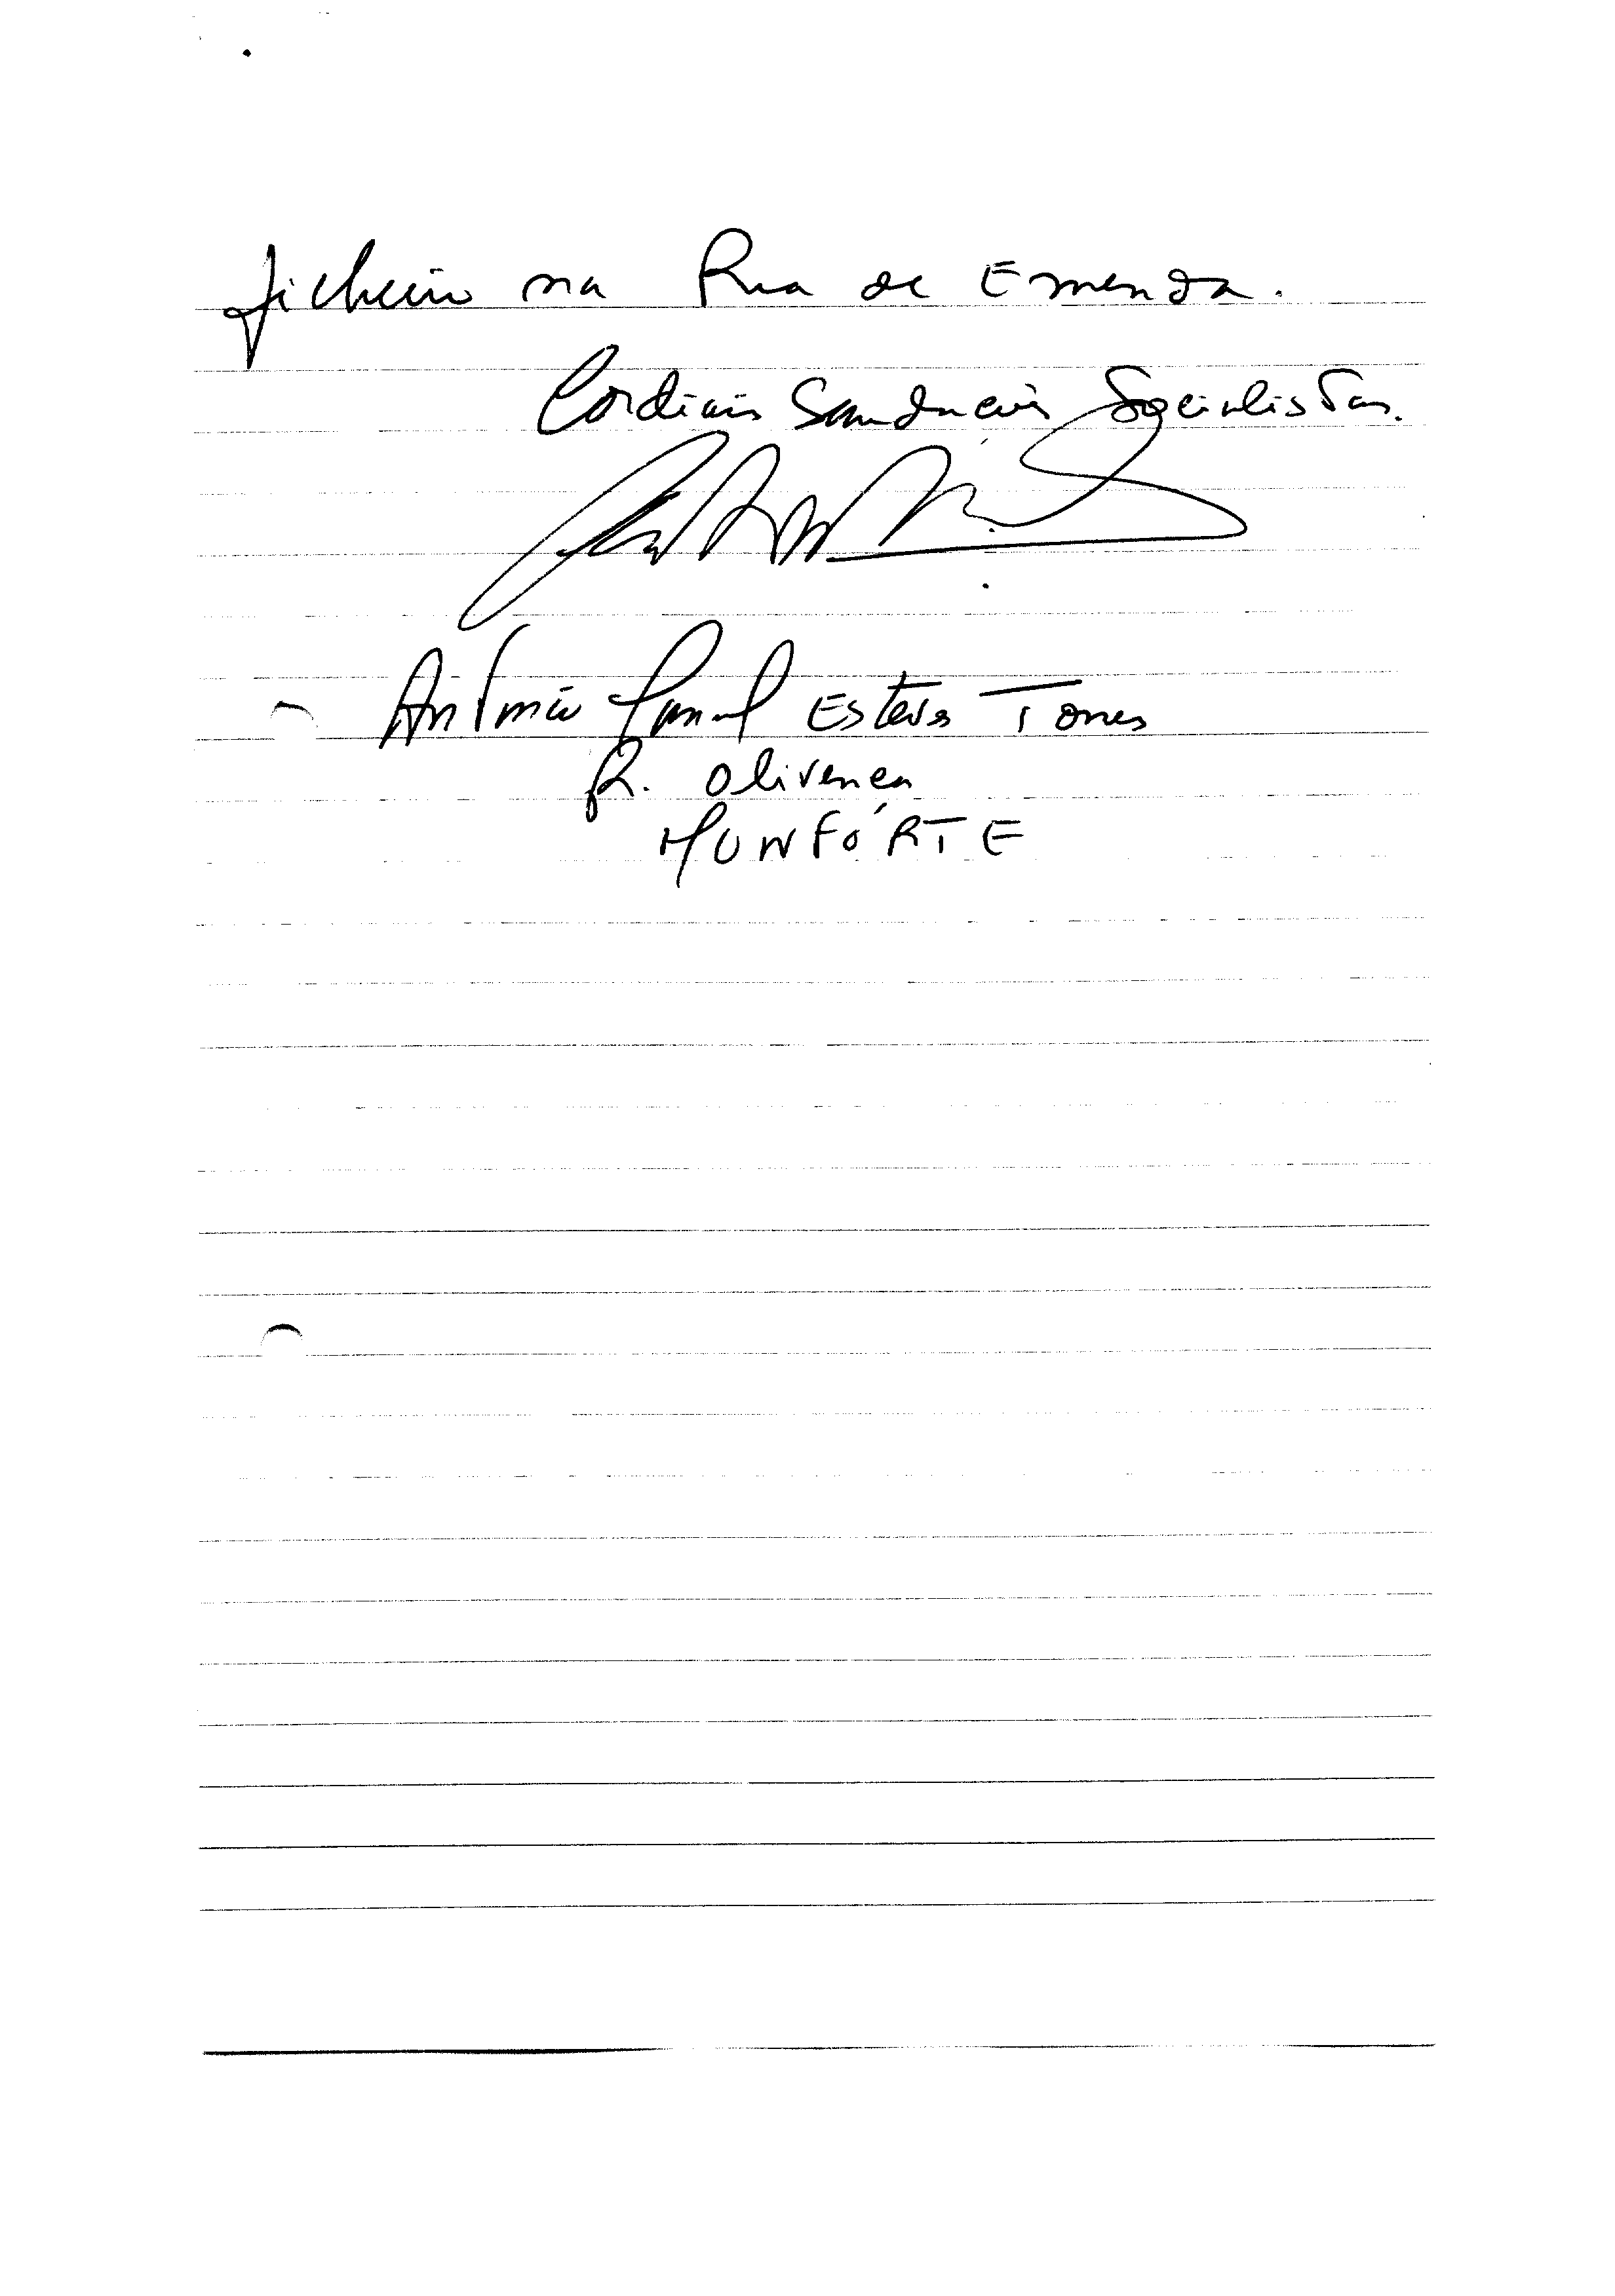 ficheiro na Rua de Emenda.
Cordiais Saudações Socialistas.
António Manuel Esteves Torres
R. Olivença
MONFORTE